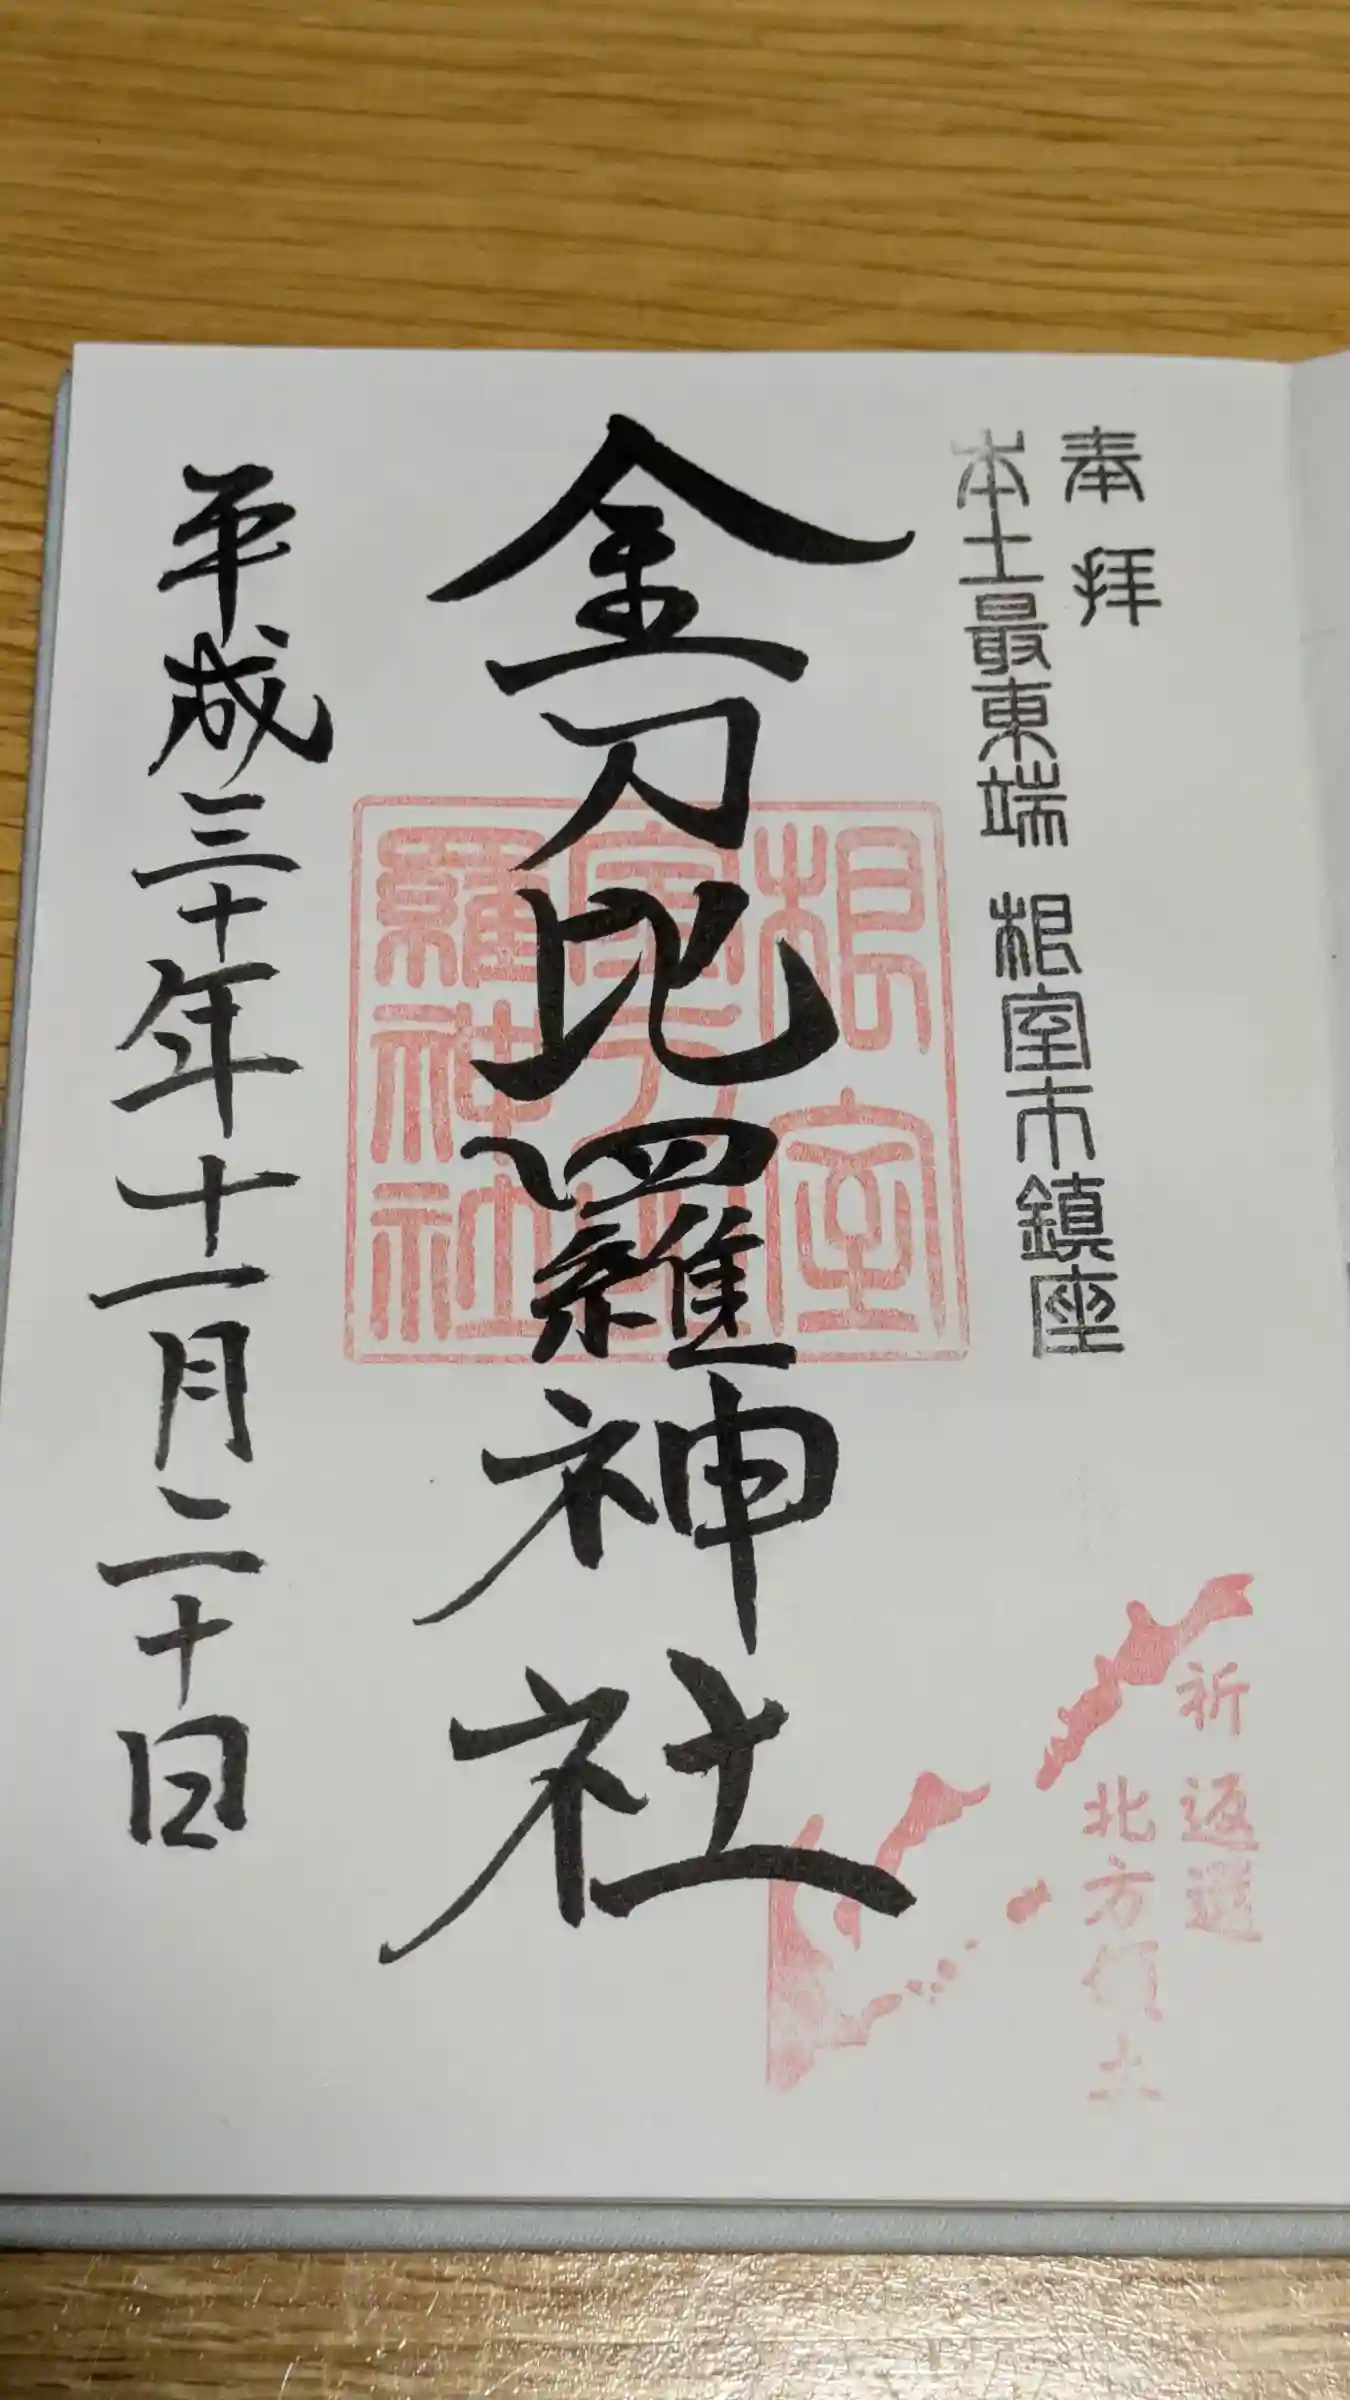 奉拝
本土最東端 根室市鎮座
金刀比羅神社
根室
金刀比
羅神社
平成三十年十一月二十日
祈 返還
北方領土